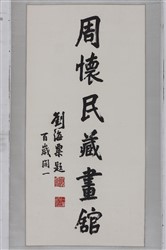 周懷民藏畫館
劉海粟題
百歲開一